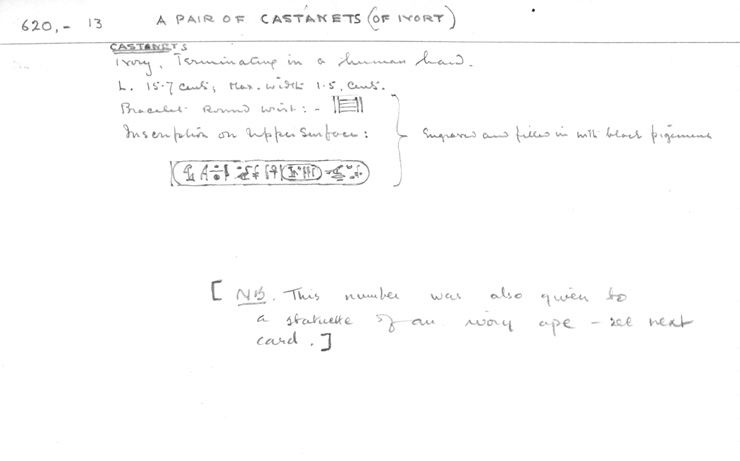 620,- 13 A PAIR OF CASTANETS (OF IVORY)
CASTANETS
Ivory, Terminating in a human hand.
L. 15.7 cents; Max. width 1.5. cents.
Bracelet Round wrist: -
Inscription on Upper Surface: Engraved and filled in with black pigment
[NB. This number was also given to
a statuette of an ivory ape - see next
card.]